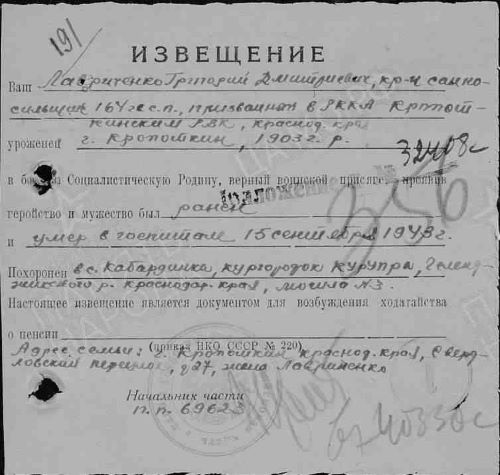 191
ИЗВЕЩЕНИЕ
Ваш Лавриненко Григорий Дмитриевич, кр-ц санно-
сильщик 164 з.с.п., призванный в РККА Кропот-
кинским РВК, Краснод. края
уроженец г. Кропоткин, 1903 г. р.
32408с
в боях за Социалистическую Родину, верный воинской присяге, проявив
геройство и мужество был ранен
356
и умер в госпитале 15 сентября 1943 г.
Похоронен в с. Кабардинка, кургородок Курупра, Геленд-
жикского р. Краснодар. края, могила №3.
Настоящее извещение является документом для возбуждения ходатайства
о пенсии (приказ НКО СССР № 220)
Адрес семьи: г. Кропоткин Краснод. края, Сверд-
ловский переулок, д 27, жена Лавриненко
Начальник части
п. п. 69623